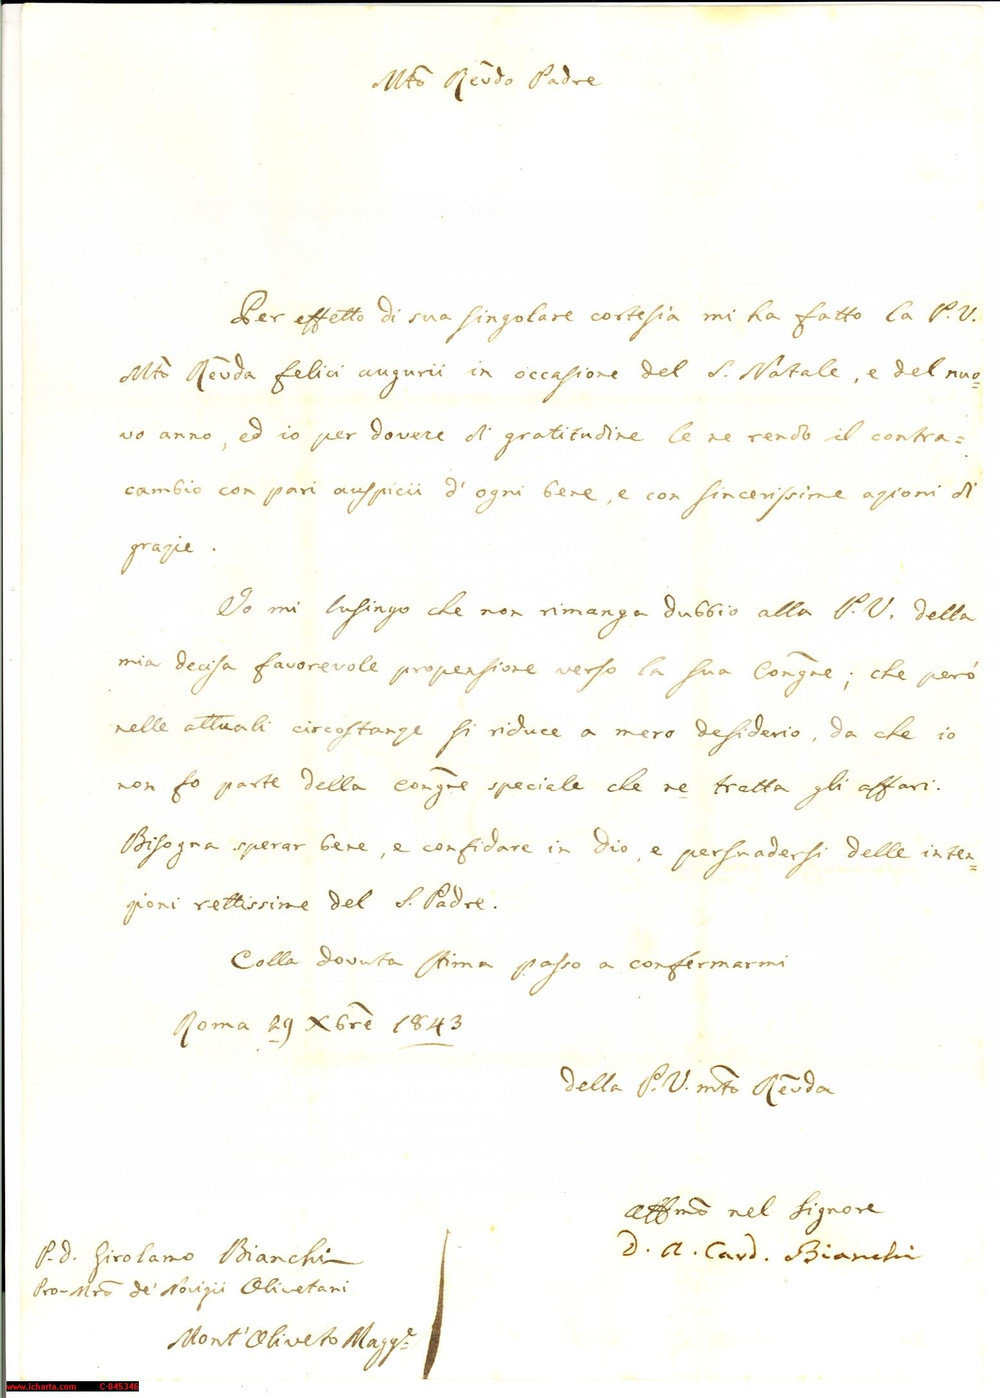 Mto Revdo Padre
Per effetto di sua singolare cortesia mi ha fatto la P. V.
Mto Revda felici augurii in occasione del S. Natale, e del nuo=
vo anno, ed io per dovere di gratitudine le ne rendo il contra=
cambio con pari auspicii d'ogni bene, e con sincerissime azioni di
grazie.
Io mi lusingo che non rimanga dubbio alla P. V. della
mia decisa favorevole propensione verso la sua Congne; che però
nelle attuali circostanze si riduce a mero desiderio, da che io
non fo parte della Congne speciale che ne tratta gli affari.
Bisogna sperar bene, e confidare in Dio, e persuadersi delle inten=
zioni rettissime del S. Padre.
Colla dovuta stima passo a confermarmi
Roma 29 Xbre 1843
della P. V. mto Revda
affmo nel Signore
D. A. Card. Bianchi
P. D. Girolamo Bianchi
Pro-Mro de' Novizii Olivetani
Mont'Oliveto Magge
www.icharta.com C-045346